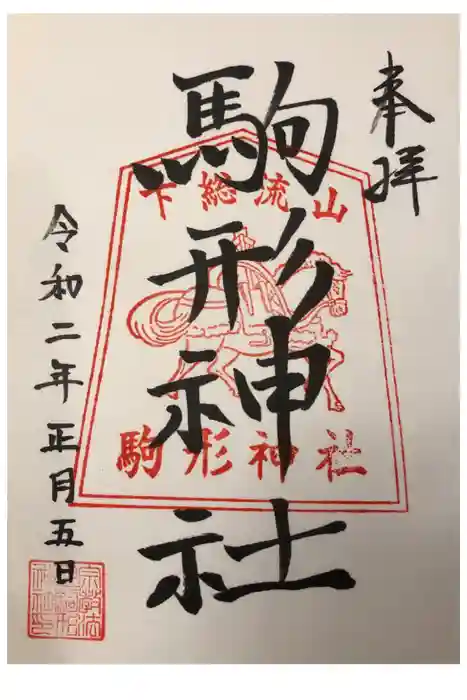 奉拝
駒形神社
下総流山
駒形神社
令和二年正月五日